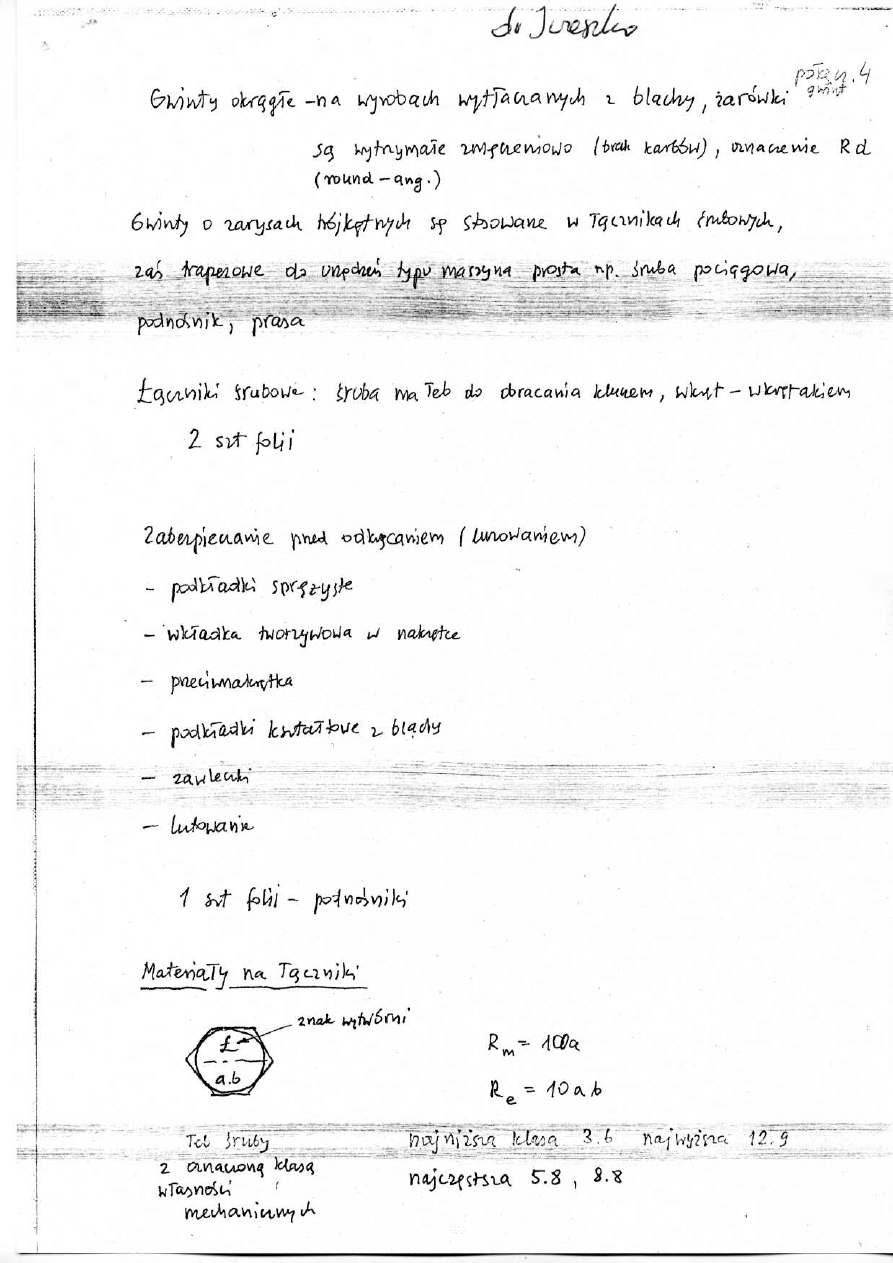 dr Jureszko
połącz. 4
gwint
Gwinty okrągłe - na wyrobach wytłaczanych z blachy, żarówki
są wytrzymałe zmęczeniowo (brak karbów), oznaczenie Rd
(round - ang.)
Gwinty o zarysach trójkątnych są stosowane w łącznikach śrubowych,
zaś trapezowe do urządzeń typu maszyna prosta np. śruba pociągowa,
podnośnik, prasa
Łączniki śrubowe: śruba ma łeb do obracania kluczem, wkręt - wkrętakiem
2 szt folii
Zabezpieczanie przed odkręcaniem (luzowaniem)
- podkładki sprężyste
- wkładka tworzywowa w nakrętce
- przeciwnakrętka
- podkładki kształtowe z blachy
- zawleczki
- lutowanie
1 szt folii - podnośniki
Materiały na łączniki
znak wytwórni
Ł
a.b
R_m = 100a
R_e = 10ab
Łeb śruby
z oznaczoną klasą
własności
mechanicznych
najniższa klasa 3.6 najwyższa 12.9
najczęstsza 5.8, 8.8